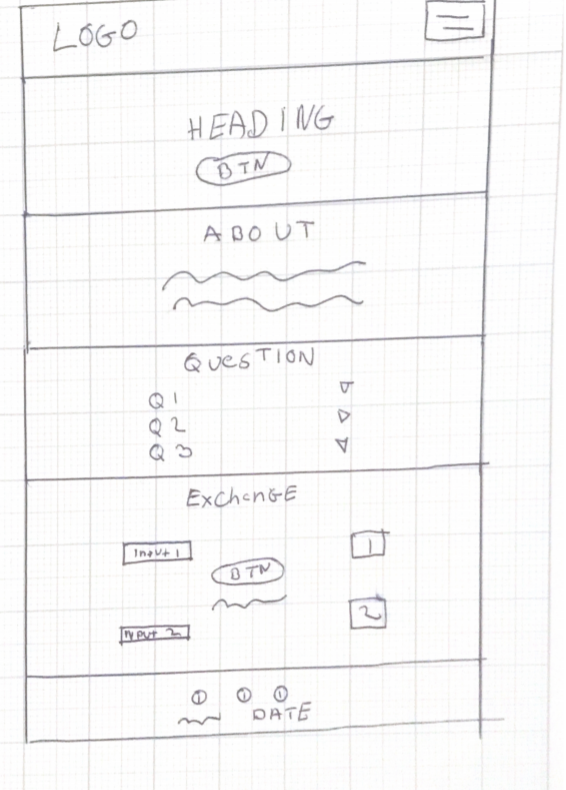 LOGO
HEADING
BTN
ABOUT
QUESTION
Q1
Q2
Q3
ExchanGE
Input 1
1
BTN
2
INPUT 2
1 1 1
DATE